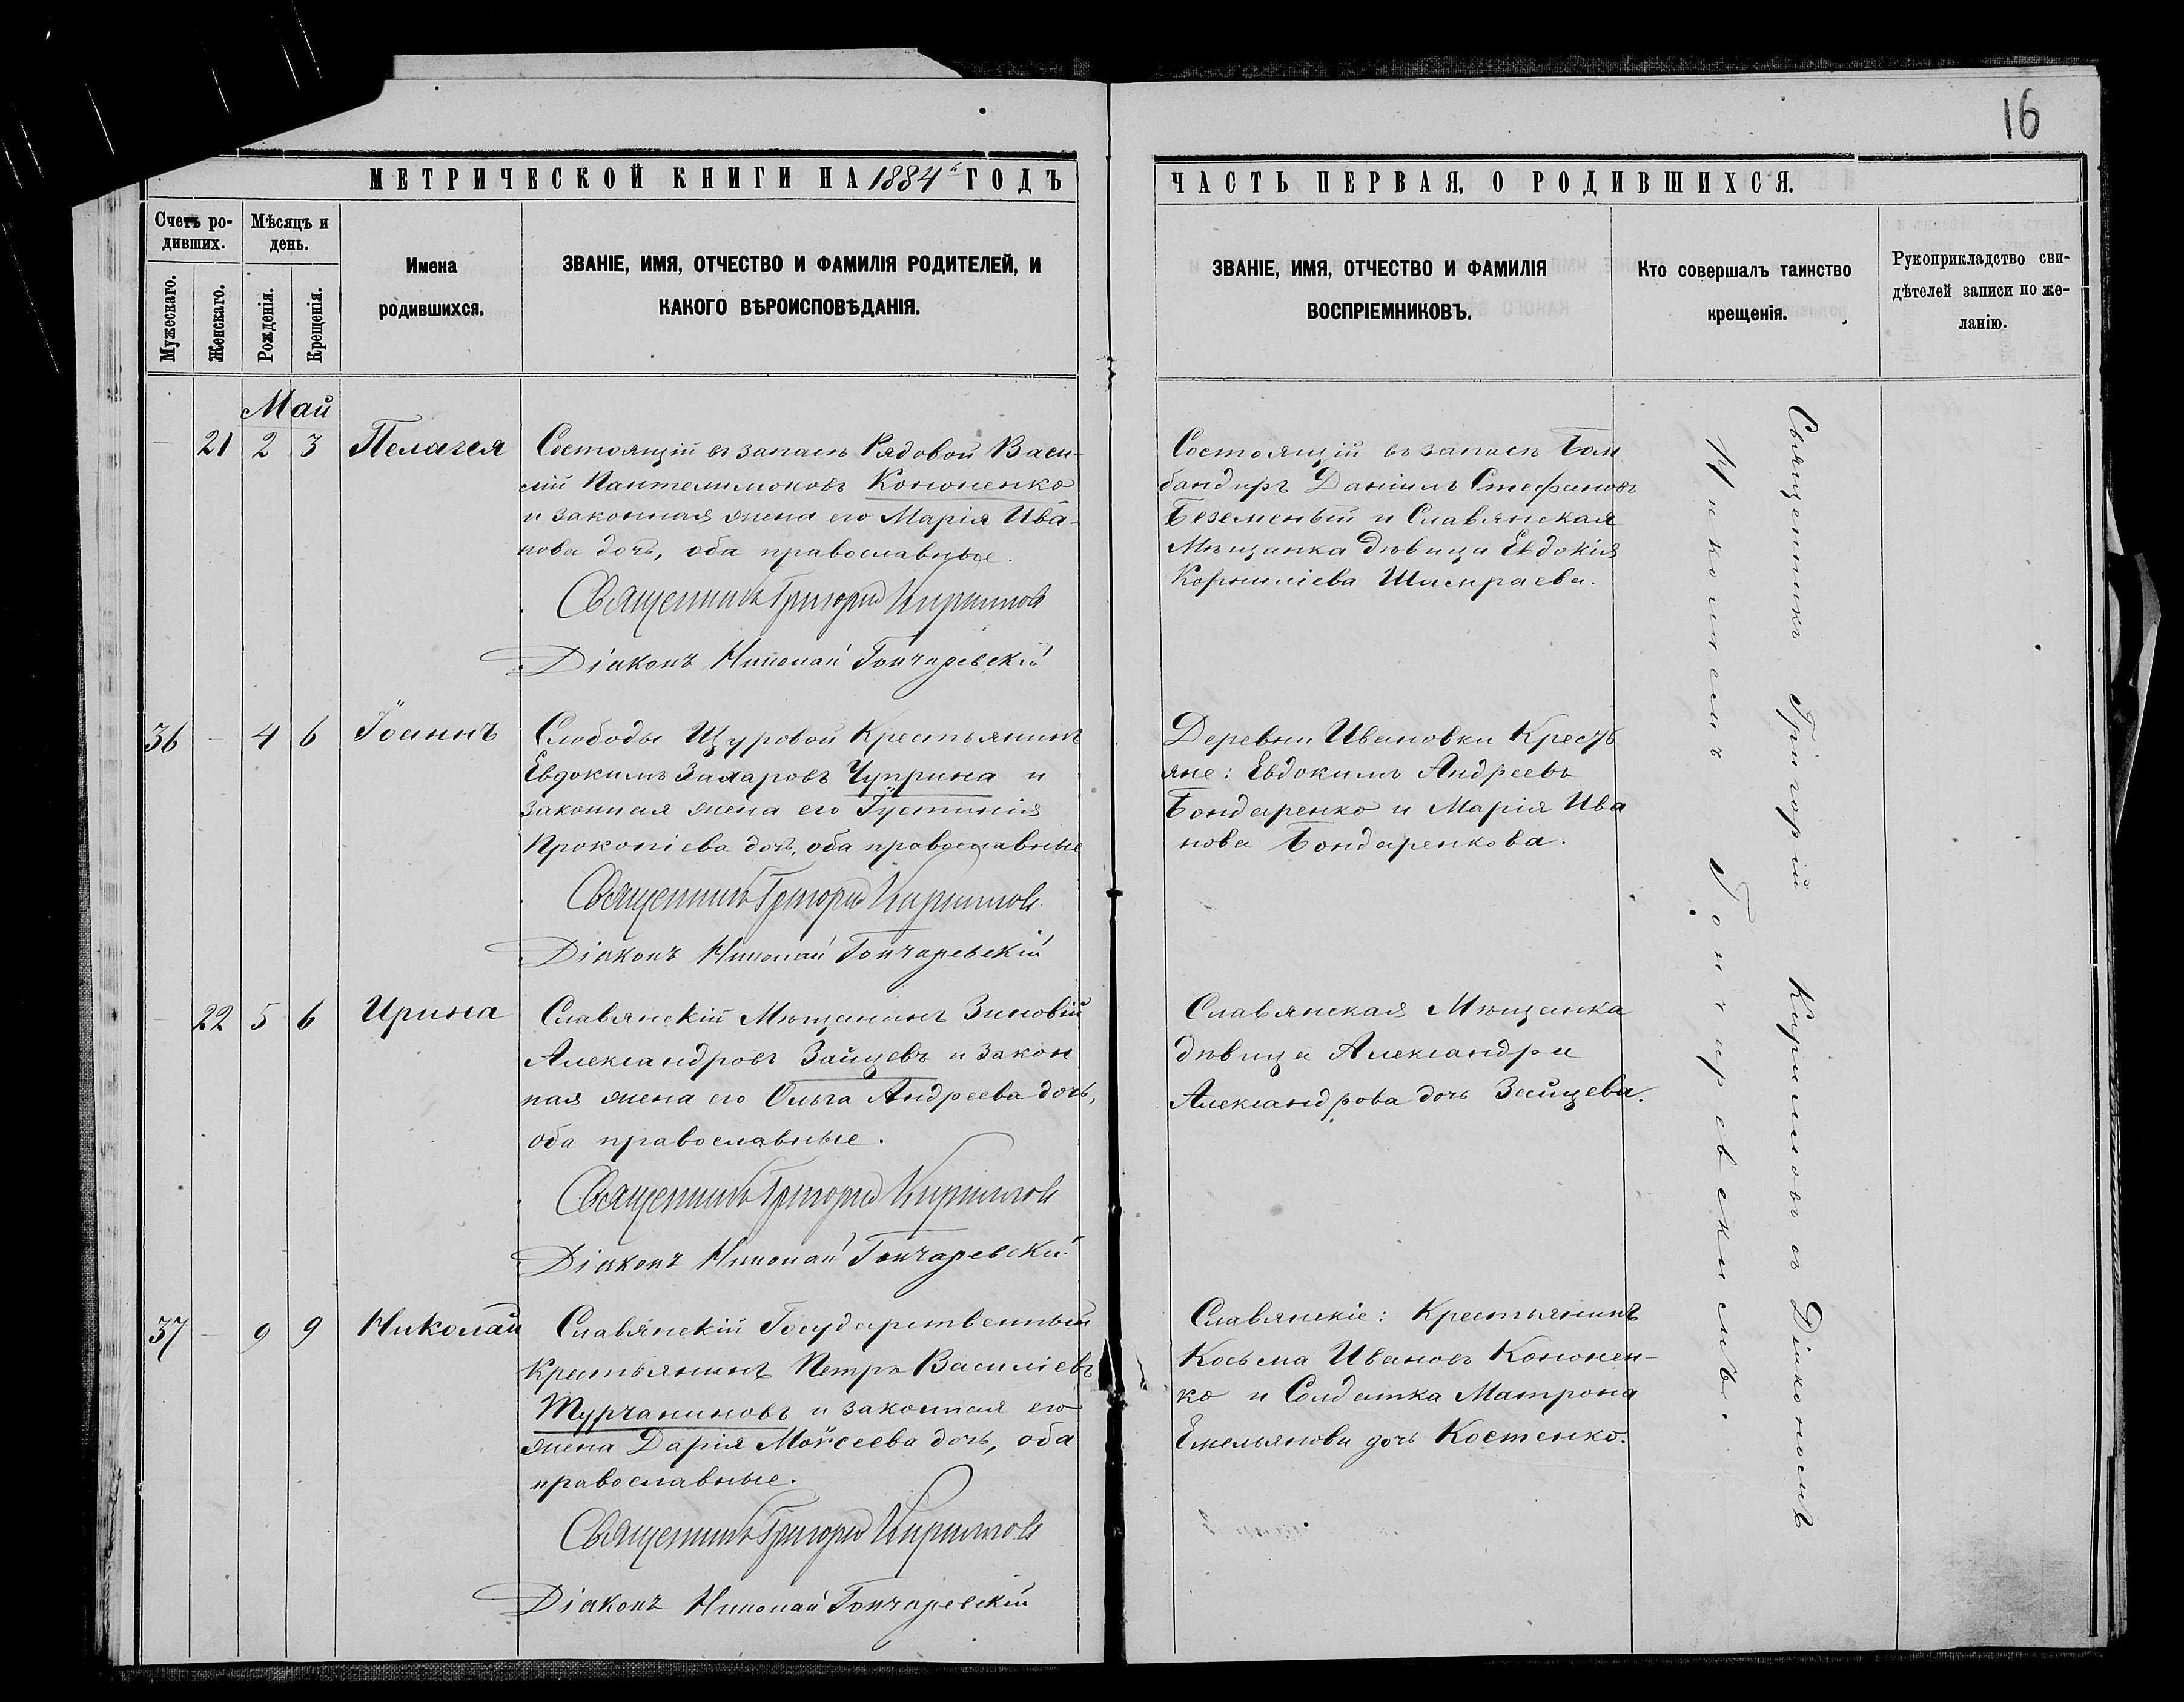 16
МЕТРИЧЕСКОЙ КНИГИ НА 1884й ГОДЪ
ЧАСТЬ ПЕРВАЯ, О РОДИВШИХСЯ.
Счетъ ро-
дивших.
Мѣсяцъ и
день.
Мужескаго.
Женскаго.
Рожденія.
Крещенія.
Имена
родившихся.
ЗВАНІЕ, ИМЯ, ОТЧЕСТВО И ФАМИЛІЯ РОДИТЕЛЕЙ, И
КАКОГО ВѢРОИСПОВѢДАНІЯ.
ЗВАНІЕ, ИМЯ, ОТЧЕСТВО И ФАМИЛІЯ
ВОСПРІЕМНИКОВЪ.
Кто совершалъ таинство
крещенія.
Рукоприкладство сви-
дѣтелей записи по же-
ланію.
Май
21 2 3 Пелагея
Состоящій въ запасѣ Рядовой Васи-
лій Пантелимоновъ Кононенко
и законная жена его Марія Ива-
нова дочь, оба православные.
Священникъ Григорій Кирилловъ
Діаконъ Николай Гончаревскій
Состоящій въ запасѣ Бом
бандиръ Даніилъ Стефановъ
Безменый и Славянская
Мѣщанка дѣвица Евдокія
Корниліева Шамраева.
36 - 4 6 Іоаннъ
Слободы Щуровой Крестьянинъ
Евдокимъ Захаровъ Чуприна и
законная жена его Іустинія
Прокопіева дочь, оба православные
Священникъ Григорій Кирилловъ
Діаконъ Николай Гончаревскій
Деревни Ивановки Крестья
яне: Евдокимъ Андреевъ
Бондаренко и Марія Ива
нова Бондаренкова.
22 5 6 Ирина
Славянскій Мѣщанинъ Зиновій
Александровъ Зайцевъ и Закон
ная жена его Ольга Андреева дочь,
оба православные.
Священникъ Григорій Кирилловъ
Діаконъ Николай Гончаревскій
Славянская Мѣщанка
дѣвица Александра
Александрова дочь Зайцева.
37 - 9 9 Николай
Славянскій Государственный
Крестьянинъ Петръ Василіевъ
Турчаниновъ и законная его
жена Дарія Моѵсеева дочь, оба
православные.
Священникъ Григорій Кирилловъ
Діаконъ Николай Гончаревскій
Славянскіе: Крестьянинъ
Косьма Ивановъ Кононен-
ко и Солдатка Матрона
Емельянова дочь Костенко.
Священникъ Григорій Кирилловъ съ Діакономъ
Николаемъ Гончаревскимъ.